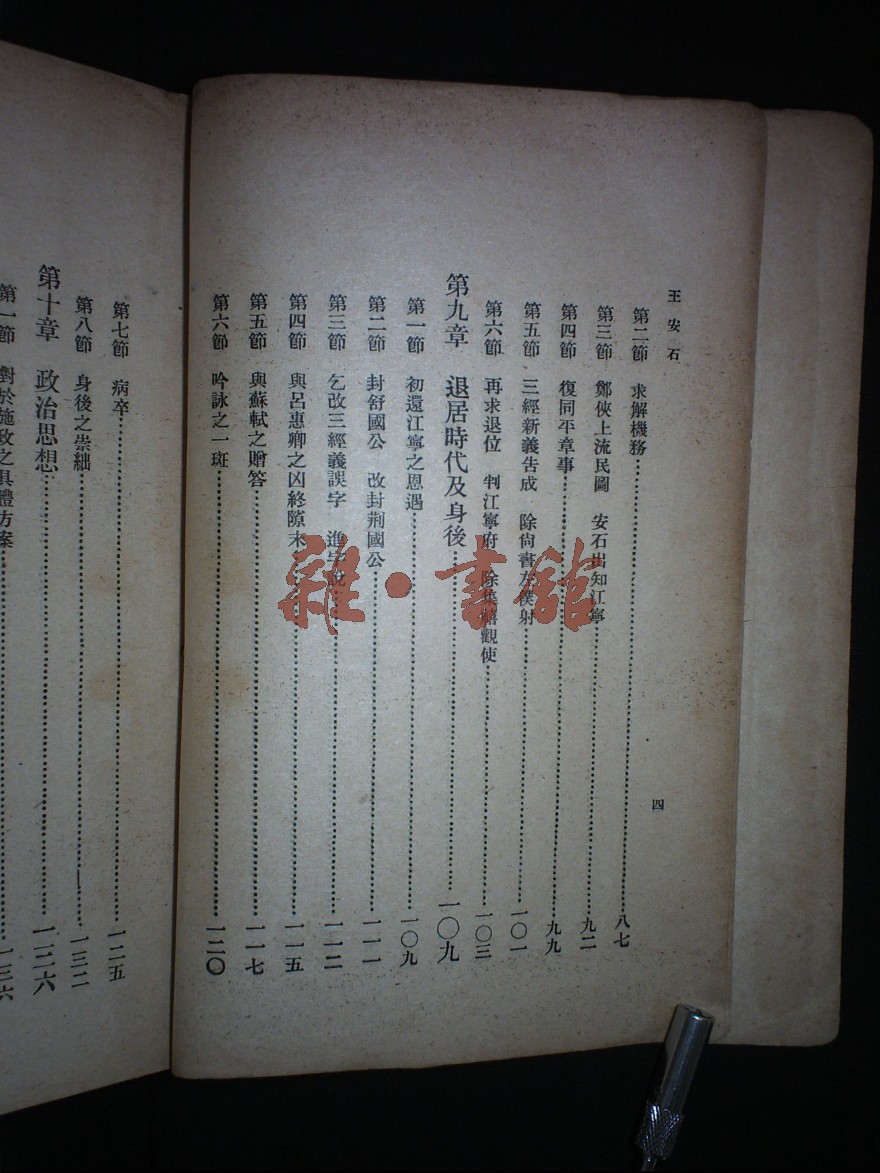 王安石
四
第二節　求解機務……八七
第三節　鄭俠上流民圖　安石出知江寧……九二
第四節　復同平章事……九九
第五節　三經新義告成　除尙書左僕射……一〇一
第六節　再求退位　判江寧府　除集禧觀使……一〇三
第九章　退居時代及身後……一〇九
第一節　初還江寧之恩遇……一〇九
第二節　封舒國公　改封荆國公……一一一
第三節　乞改三經義誤字　進字說……一一二
第四節　與呂惠卿之凶終隙末……一一五
第五節　與蘇軾之贈答……一一七
第六節　吟詠之一斑……一二〇
第七節　病卒……一二五
第八節　身後之崇絀……一三二
第十章　政治思想……一三六
第一節　對於施政之具體方案……一三六
雜·書館